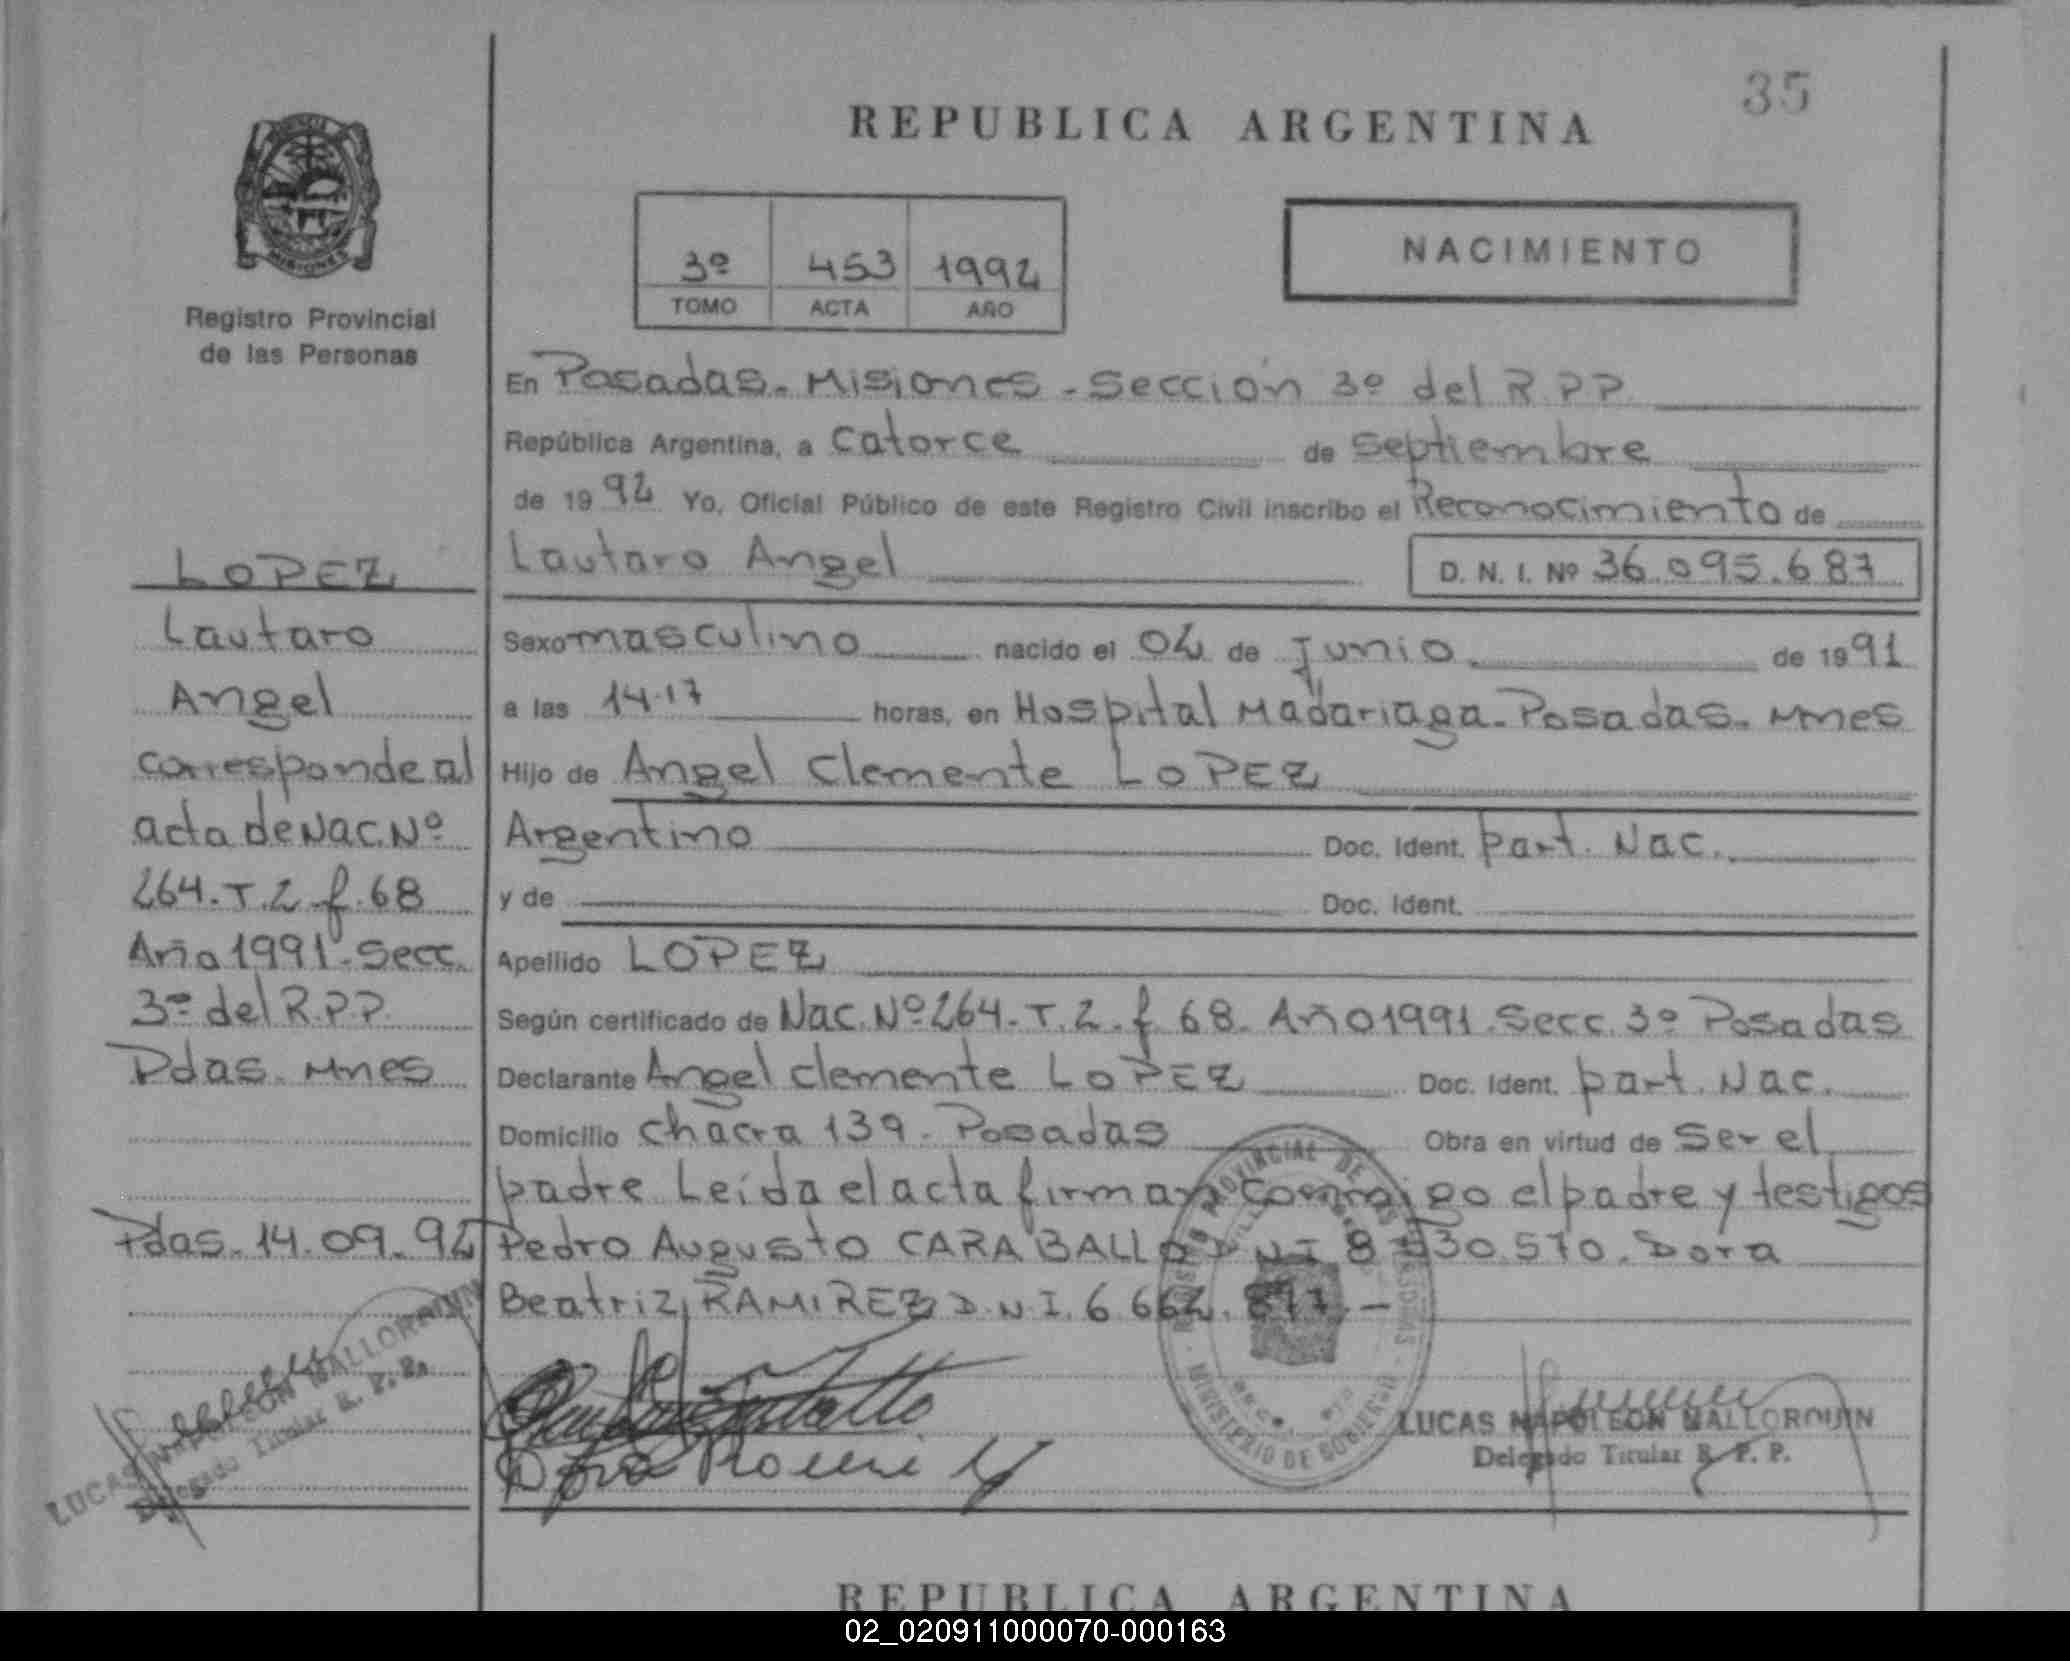 35
REPUBLICA ARGENTINA
3º 453 1992
TOMO ACTA AÑO
NACIMIENTO
MISIONES
Registro Provincial
de las Personas
LOPEZ
Lautaro
Angel
corresponde al
acta de Nac. Nº
264. T. 2 f. 68
Año 1991. Secc.
3º del R.P.P.
Pdas. Mnes
Pdas. 14.09.92
LUCAS NAPOLEON MALLORQUIN
Delegado Titular R. P. P.
En Posadas. Misiones - Sección 3º del R.P.P.
República Argentina, a catorce de septiembre
de 1992 Yo, Oficial Público de este Registro Civil inscribo el Reconocimiento de
Lautaro Angel D. N. I. Nº 36.095.687
Sexo masculino nacido el 02 de Junio de 1991
a las 14.17 horas, en Hospital Madariaga. Posadas. Mnes
Hijo de Angel Clemente LOPEZ
Argentino Doc. Ident. part. Nac.
y de Doc. Ident.
Apellido LOPEZ
Según certificado de Nac. Nº 264. T. 2. f 68. Año 1991. Secc. 3º Posadas
Declarante Angel Clemente LOPEZ Doc. Ident. part. Nac.
Domicilio Chacra 139. Posadas Obra en virtud de ser el
padre Leída el acta firman conmigo el padre y testigos
Pedro Augusto CARABALLO D.N.I 8 530.570. Dora
Beatriz RAMIREZ D.N.I. 6.662.877.-
REGISTRO PROVINCIAL DE LAS PERSONAS
MINISTERIO DE GOBIERNO
LUCAS NAPOLEON MALLORQUIN
Delegado Titular R. P. P.
REPUBLICA ARGENTINA
02_020911000070-000163